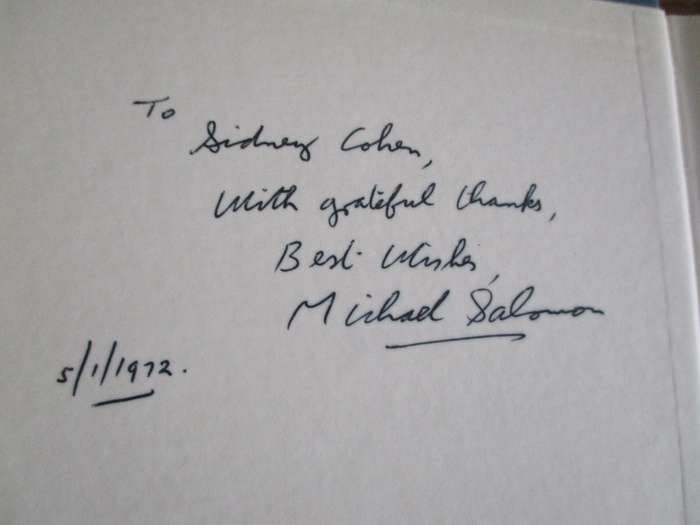 To
Sidney Cohen,
With grateful thanks,
Best Wishes,
Michael Salomon
5/1/1972.